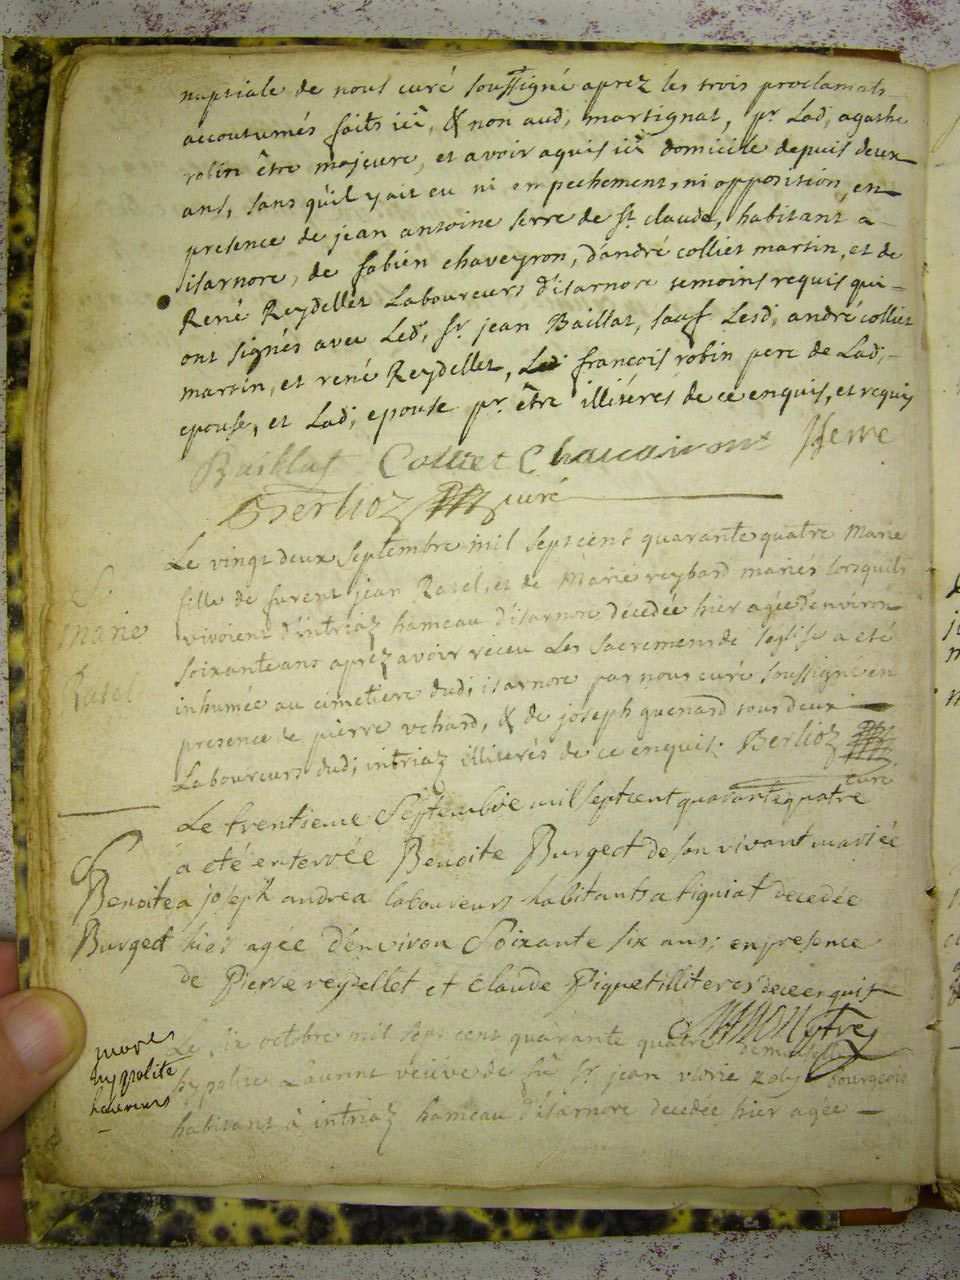 nuptiale de nous curé soussigné aprez les trois proclamats
accoutumés faits icÿ, & non aud, martignat, pr. Lad, agathe
robin être majeure, et avoir aquis icÿ domicile depuis deux
ans, sans qu'il y ait eu ni empechement, ni opposition, en
presence de jean antoine serre de st. claude, habitant a
isarnore, de fabien chaveyron, d'andré colliet martin, et de
René Reydellet Laboureurs d'isarnore temoins requis qui
ont signés avec Led, sr. jean Baillat, sauf Lesd, andré colliet
martin, et rené Reydellet, françois robin pere de Lad,
epouse, et Lad, epouse pr. être illiterés de ce enquis, et requis
Baillat Colliet Serre
Berlioz curé
Le vingt deux septembre mil sept cent quarante quatre Marie
fille de furent jean Ratel, et de Marie reybard mariés lorsquils
vivoient d'intriaz hameau d'isarnore decedée hier agée denviron
soixante ans aprez avoir receu Les sacremens de l'eglise a eté
inhumée au cimetiere dud, isarnore par nous curé soussigné en
presence de pierre vehard, & de joseph guenard tous deux
Laboureurs dud, intriaz illiterés de ce enquis. Berlioz
curé
Marie
Ratel
Le trentieme Septembre mil sept cent quarante quatre
a eté enterrée Benoite Burgect de son vivant mariée
a joseph andrea laboureurs habitants a tigniat decedée
hier agée d'environ Soixante six ans; en presence
de Pierre reydellet et Claude Piquet illiteres de ce enquis
Benoite
Burgect
Le six octobre mil sept cent quarante quatre demoiselle
hypolite Laurent veuve de fû sr. jean bourgeois
habitant à intriaz hameau d'isarnore decedée hier agée
hyppolite